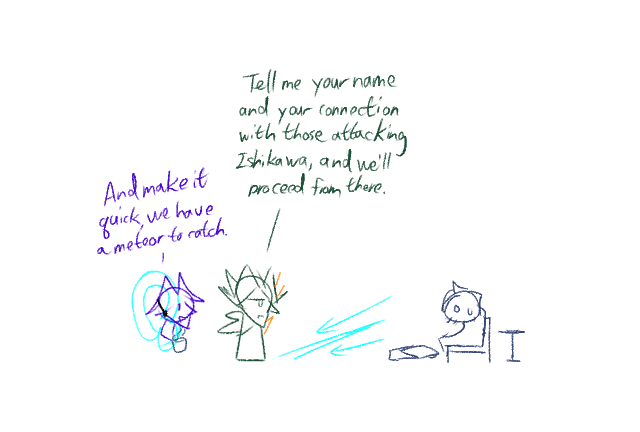 Tell me your name
and your connection
with those attacking
Ishikawa, and we'll
proceed from there.
And make it
quick, we have
a meteor to catch.